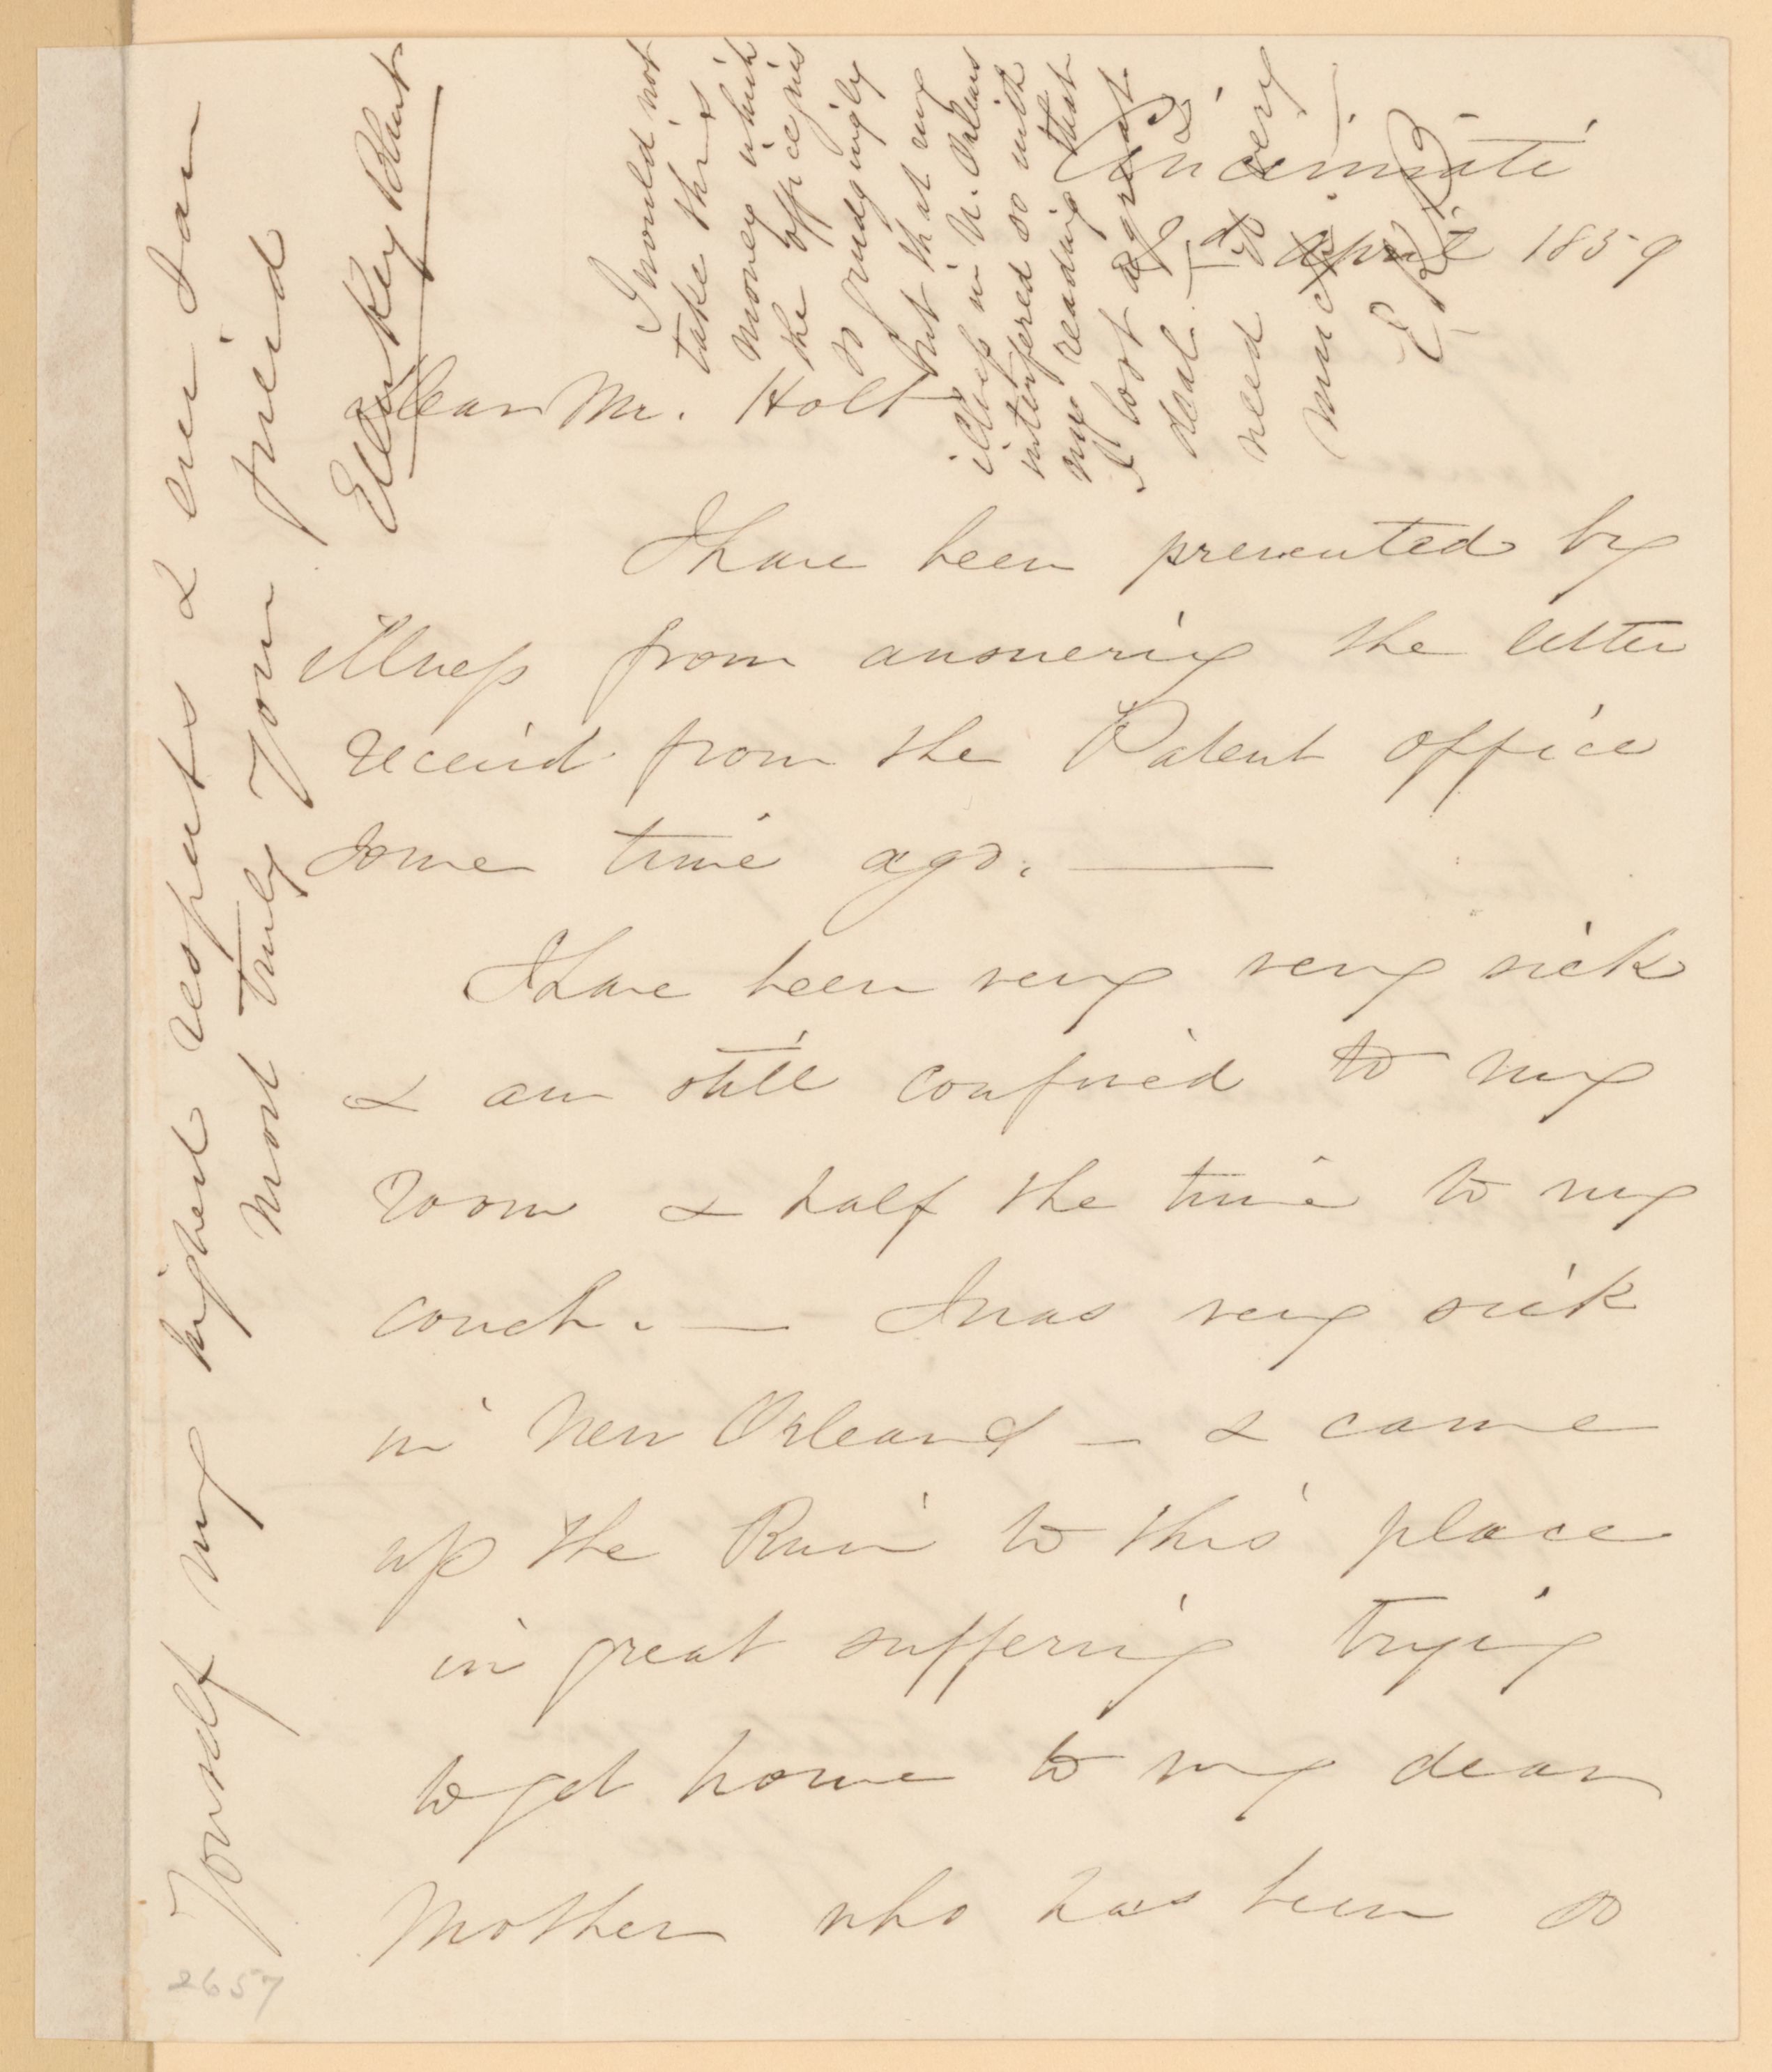 Cincinnati
2d April 1859
Dear Mr. Holt
I have been prevented by
illness from answering the letter
receivd from the Patent office
some time ago. —
I have been very very sick
& am still confined to my
room & half the time to my
couch. — I was very sick
in New Orleans — & came
up the River to this place
in great suffering trying
to get home to my dear
Mother who has been so
Yourself my highest respects & ever I am
most truly your friend
Ellen Key Blunt
I would not
take this
money which
the office gives
so grudgingly
but that my
illness in N. Orleans
interfered so with
my reading that
I lost a great
deal. — & I
need it very
much. —
E K B
2657